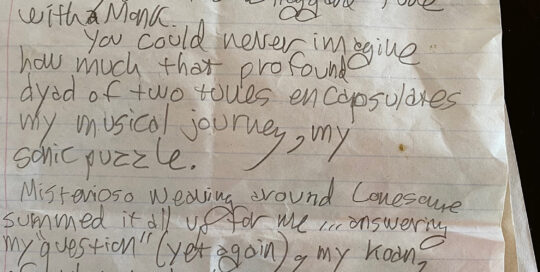 with a Monk.
You could never imagine
how much that profound
dyad of two tunes encapsulates
my musical journey, my
sonic puzzle.
Misterioso weaving around Lonesome
summed it all up for me ... answering
my "question" (yet again), my koan,